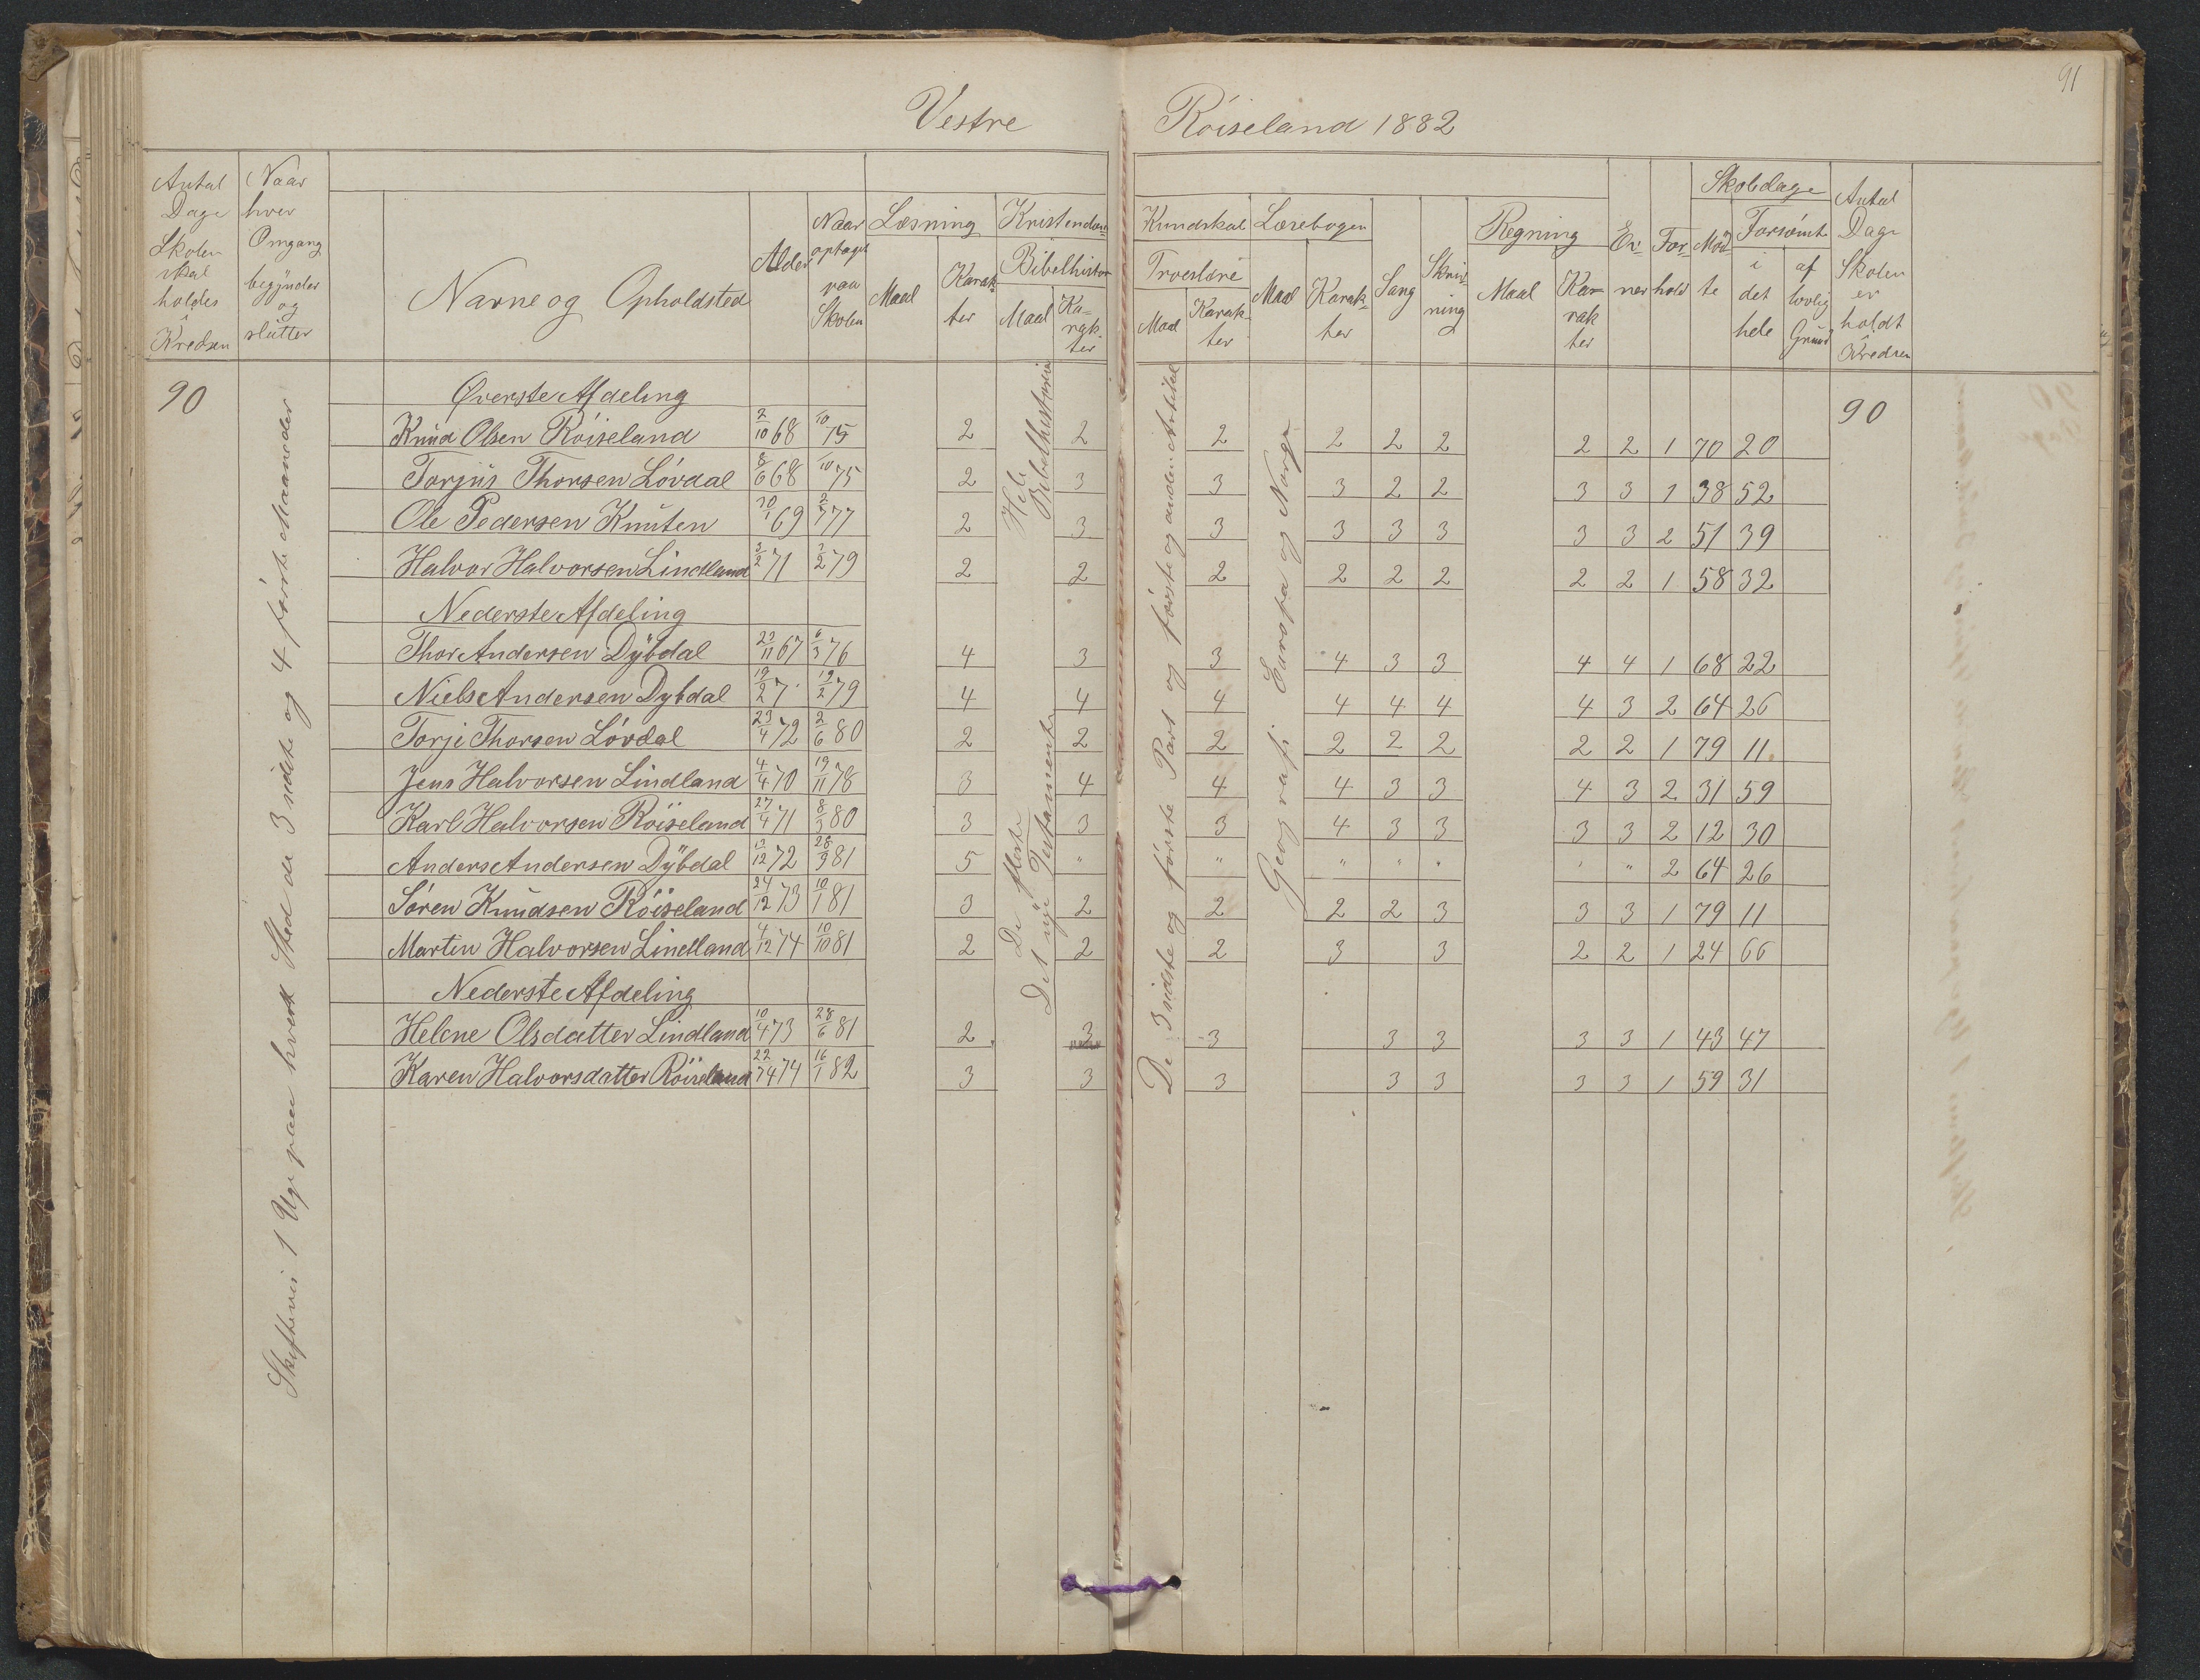 91
Vestre Röiseland 1882
Antal Dage Skolen skal holdes i Kredsen
Naar hver Omgang begynder og slutter
Navne og Opholdsted
Alder
Naar optaget paa Skolen
Læsning Maal Karakter
Kristendoms Kundskab
Bibelhistor Maal Karakter
Troeslære Maal Karakter
Læsebogen Maal Karakter
Sang
Skrivning
Regning Maal Karakter
Evner
Forhold
Skoledage
Mödte
Forsömte
i det hele
af lovlig Grund
Antal Dage Skolen er holdt i Kredsen
90
Skiftevis 1 Uge paa hvert Sted de 3 sidste og 4 förste Maaneder
Hele Bibelhistorie
De fleste Det nye Testamente
De 3 sidste og förste Part og förste og anden Artikel
Geografi Europa og Norge
90
Øverste Afdeling
Knud Olsen Röiseland 2/10 68 /10 75 2 2 2 2 2 2 2 2 1 70 20
Torjus Thorsen Lövdal 8/6 68 /10 75 2 3 3 3 2 2 3 3 1 38 52
Ole Pedersen Knuten 10/1 69 2/7 77 2 3 3 3 3 3 3 3 2 51 39
Halvor Halvorsen Lindland 3/2 71 3/2 79 2 2 2 2 2 2 2 2 1 58 32
Nederste Afdeling
Thor Andersen Dybdal 29/11 67 6/3 76 4 3 3 4 3 3 4 4 1 68 22
Niels Andersen Dybdal 19/2 7 19/2 79 4 4 4 4 4 4 4 3 2 64 26
Torje Thorsen Lövdal 23/4 72 2/6 80 2 2 2 2 2 2 2 2 1 79 11
Jens Halvorsen Lindland 4/4 70 19/11 78 3 4 4 4 3 3 4 3 2 31 59
Karl Halvorsen Röiseland 27/4 71 8/3 80 3 3 3 4 3 3 3 3 2 12 30
Anders Andersen Dybdal 13/12 72 28/9 81 5 " " " " " " " 2 64 26
Sören Knudsen Röiseland 24/12 73 10/1 81 3 2 2 2 2 3 3 3 1 79 11
Martin Halvorsen Lindland 4/12 74 10/10 81 2 2 2 3 3 2 2 1 24 66
Nederste Afdeling
Helene Olsdatter Lindland 10/4 73 28/6 81 2 3 3 3 3 3 3 1 43 47
Karen Halvorsdatter Röiseland 74 16/1 82 3 3 3 3 3 3 3 1 59 31